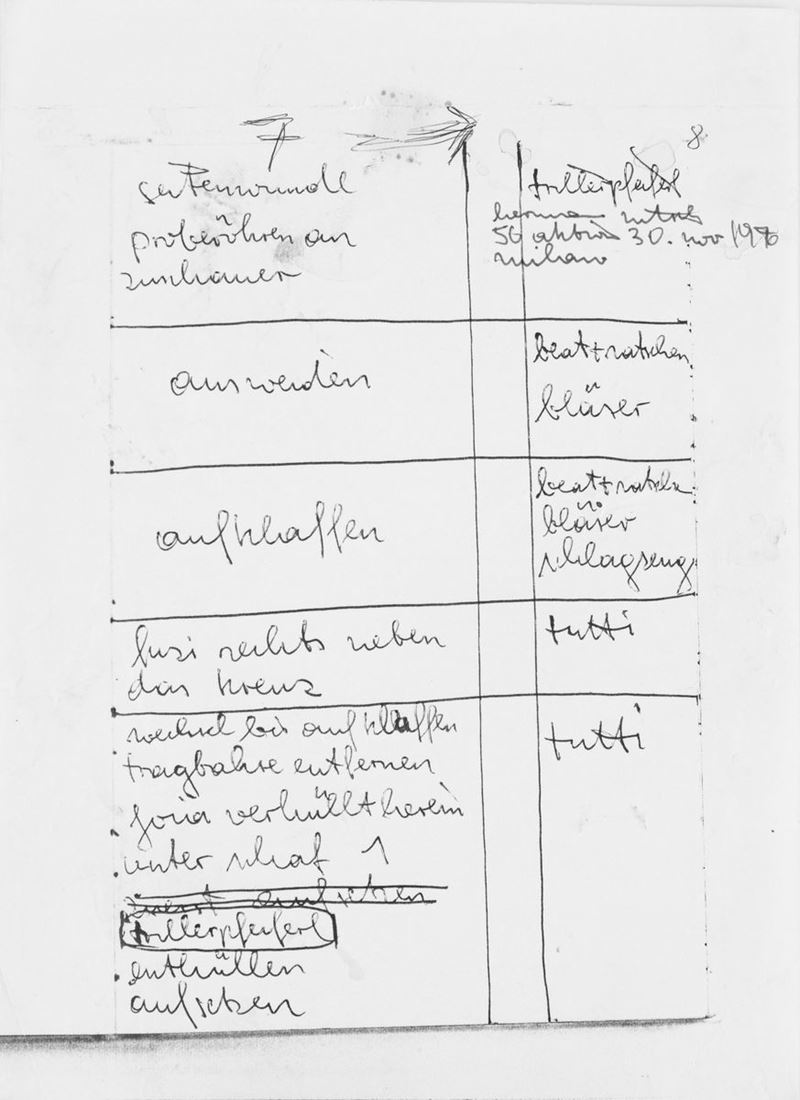 7
8.
seitenwunde
proberöhren an
zuschauer
trillerpfeiferl
hermann nitsch
56 aktion 30. nov 1976
milano
ausweiden
beat+ratschen
bläser
aufklaffen
beat+ratschen
bläser
schlagzeug
rechts neben
das kreuz
tutti
wechsel bis aufklaffen
tragbahre entfernen
verhüllt herein
unter schaf 1
zuerst aufsetzen
trillerpfeiferl
enthüllen
aufsetzen
tutti